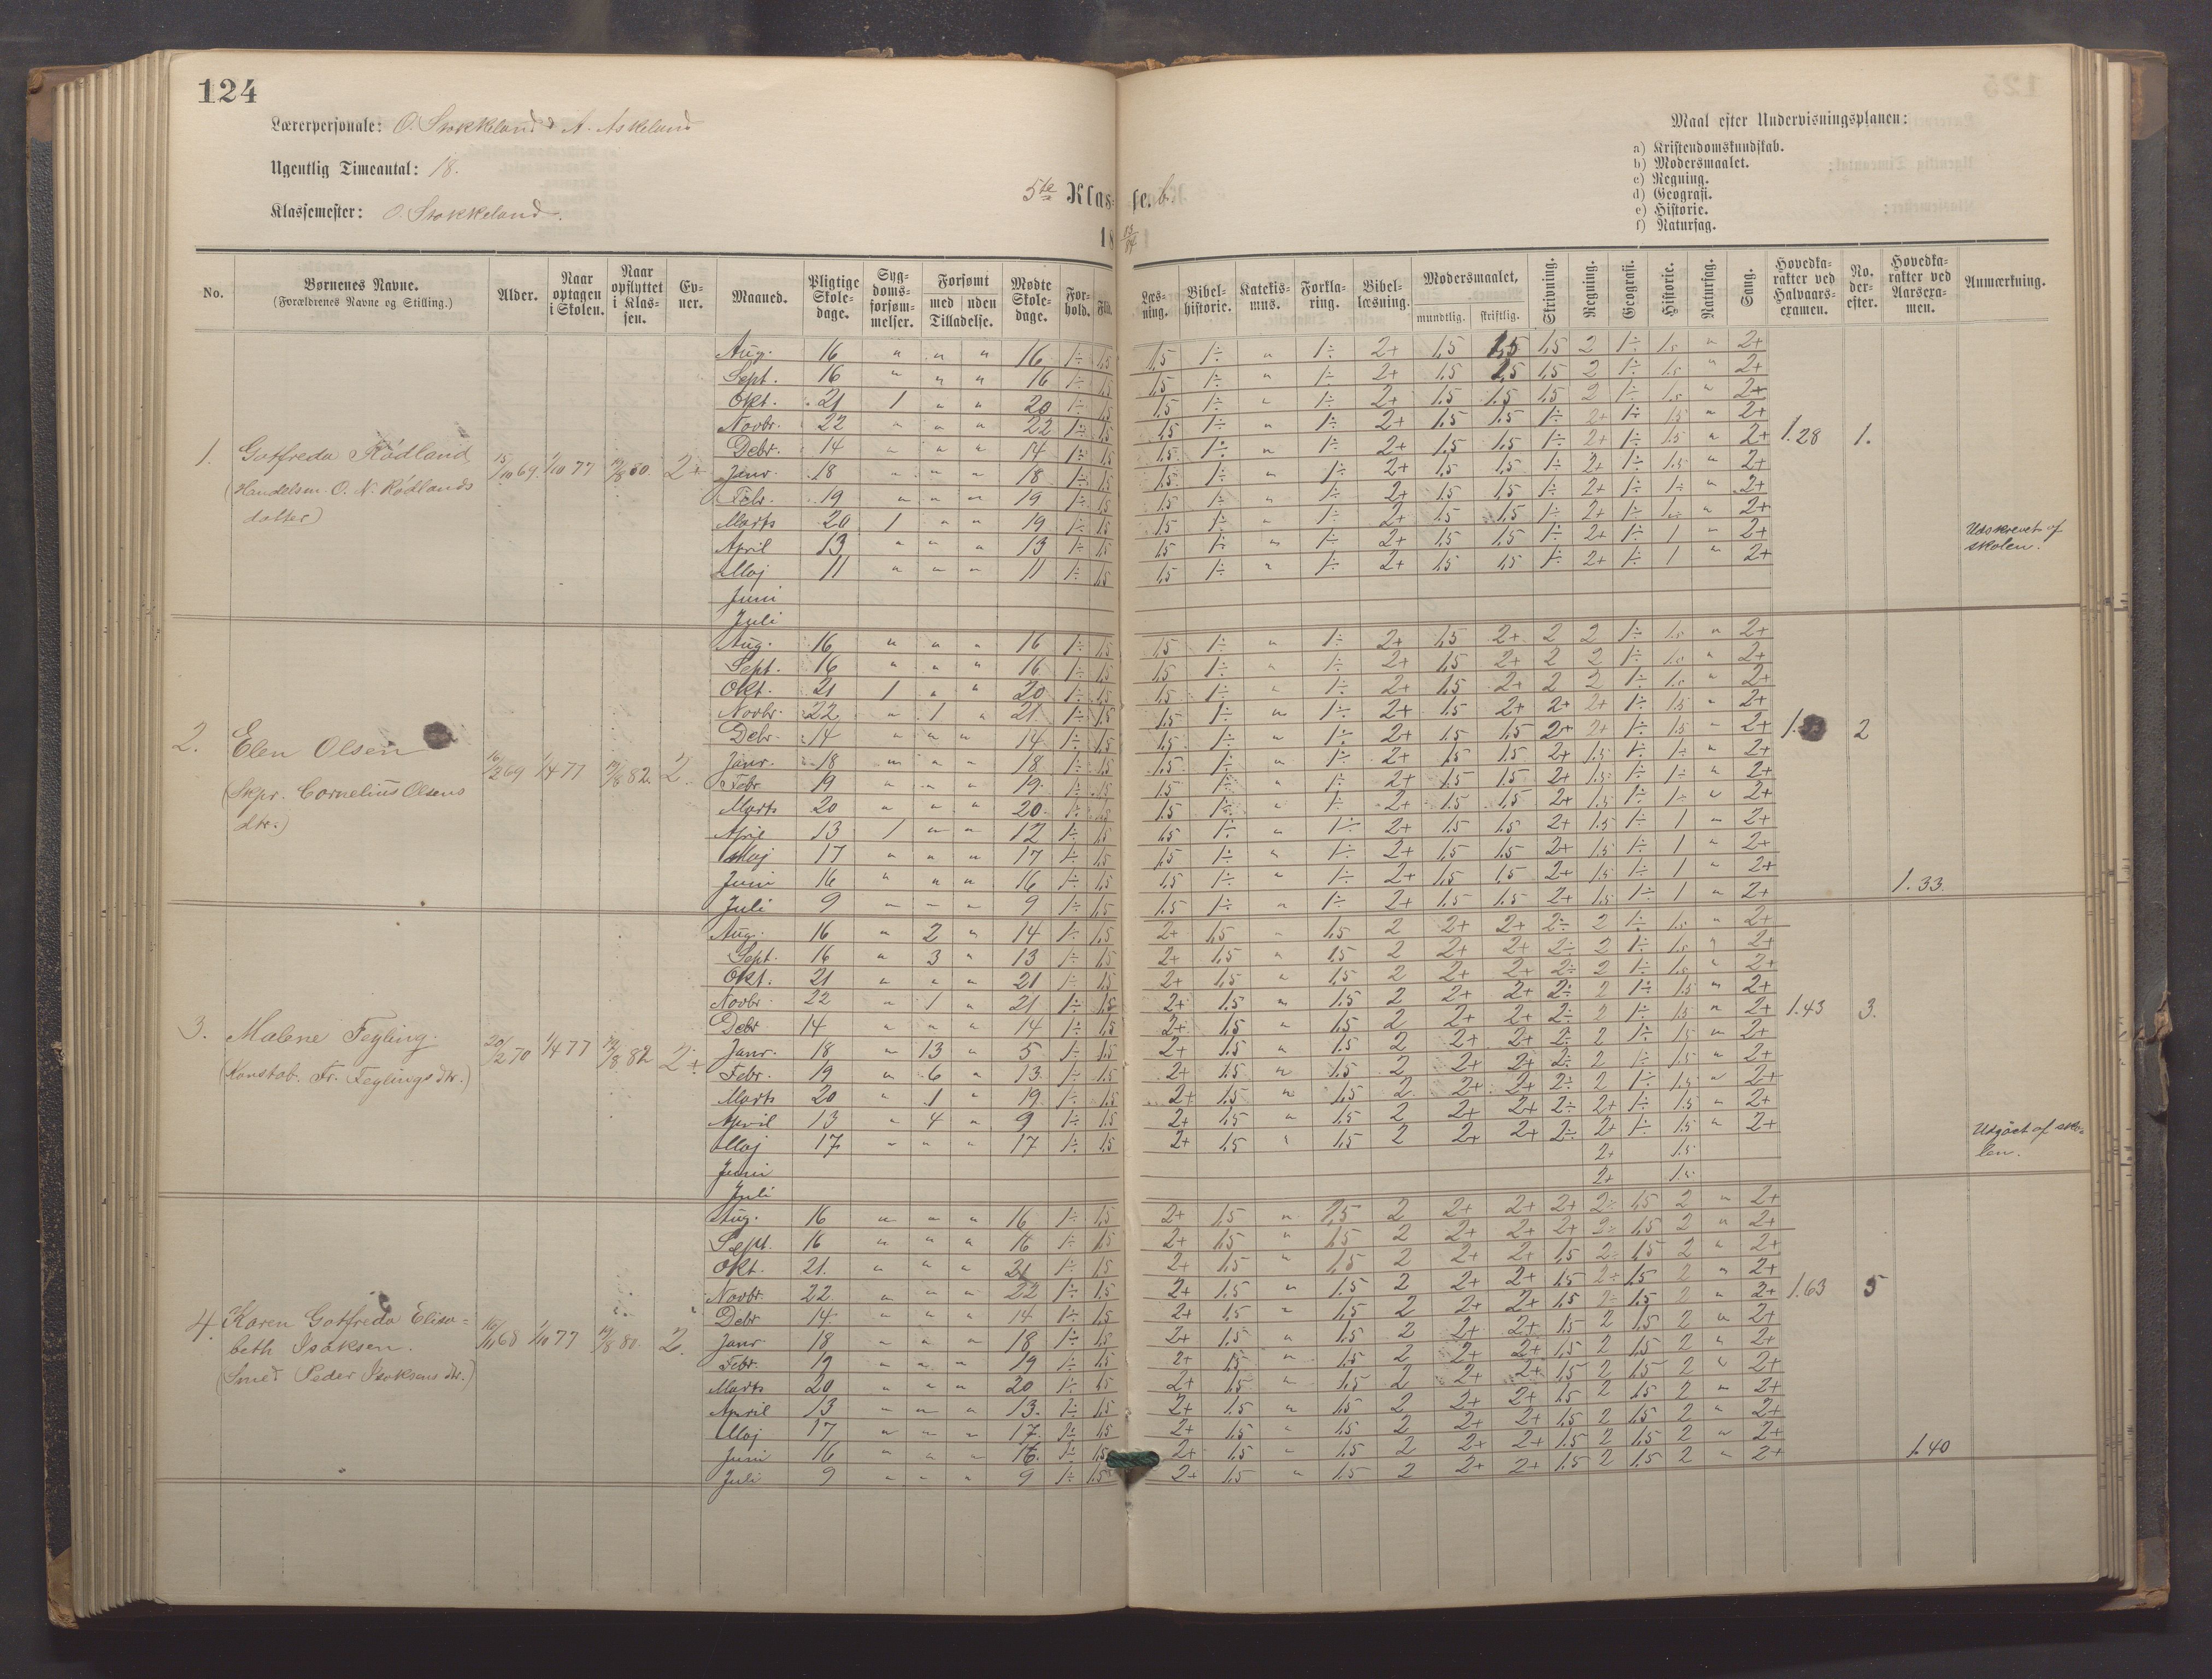 124
Lærerpersonale: O. Stokkeland & A. Askeland
Ugentlig Timeantal: 18.
Klassemester: O. Stokkeland.
5te Klasse. b.
18 83/84
Maal efter Undervisningsplanen:
a) Kristendomskundskab.
b) Modersmaalet.
c) Regning.
d) Geografi.
e) Historie.
f) Naturfag.
No. Børnenes Navne. (Forældrenes Navne og Stilling.) Alder. Naar optagen i Skolen. Naar opflyttet i Klassen. Evner. Maaned. Pligtige Skoledage. Sygdomsforsømmelser. Forsømt med uden Tilladelse. Mødte Skoledage. Forhold. Flid. Læsning. Bibelhistorie. Katekismus. Forklaring. Bibellæsning. Modersmaalet, mundtlig. skriftlig. Skrivning. Regning. Geografi. Historie. Naturfag. Sang. Hovedkarakter ved Halvaarsexamen. No. derefter. Hovedkarakter ved Aarsexamen. Anmærkning.
1. Gotfreda Rødland
(Handelsm. O. N. Rødlands
datter)
15/10 69. 1/10 77 2+ 1.28 1.
Aug. 16 " " " 16 1÷ 1,5 1,5 1÷ " 1÷ 2+ 1,5 1,5 1,5 2 1÷ 1,5 " 2+
Sept. 16 " " " 16 1÷ 1,5 1,5 1÷ " 1÷ 2+ 1,5 1,5 1,5 2 1÷ 1,5 " 2+
Okt. 21 1 " " 20 1÷ 1,5 1,5 1÷ " 1÷ 2+ 1,5 1,5 1,5 2 1÷ 1,5 " 2+
Novbr. 22 " " " 22 1÷ 1,5 1,5 1÷ " 1÷ 2+ 1,5 1,5 1÷ 2+ 1÷ 1,5 " 2+
Debr. 14 " " " 14 1÷ 1,5 1,5 1÷ " 1÷ 2+ 1,5 1,5 1÷ 2+ 1÷ 1,5 " 2+
Janr. 18 " " " 18 1÷ 1,5 1,5 1÷ " 1÷ 2+ 1,5 1,5 1÷ 2+ 1÷ 1,5 " 2+
Febr. 19 " " " 19 1÷ 1,5 1,5 1÷ " 1÷ 2+ 1,5 1,5 1÷ 2+ 1÷ 1÷ " 2+
Marts 20 1 " " 19 1÷ 1,5 1,5 1÷ " 1÷ 2+ 1,5 1,5 1÷ 2+ 1÷ 1÷ " 2+
April 13 " " " 13 1÷ 1,5 1,5 1÷ " 1÷ 2+ 1,5 1,5 1÷ 2+ 1÷ 1 " 2+
Maj 11 " " " 11 1÷ 1,5 1,5 1÷ " 1÷ 2+ 1,5 1,5 1÷ 2+ 1÷ 1 " 2+
Juni
Juli
Udskrevet af
skolen.
2. Elen Olsen
(Skpr. Cornelius Olsens
dtr.)
16/2 69 1/4 77 2. 2
Aug. 16 " " " 16 1÷ 1,5 1,5 1÷ " 1÷ 2+ 1,5 2+ 2 2 1÷ 1,5 " 2+
Sept. 16 " " " 16 1÷ 1,5 1,5 1÷ " 1÷ 2+ 1,5 2+ 2 2 1÷ 1,5 " 2+
Okt. 21 1 " " 20 1÷ 1,5 1,5 1÷ " 1÷ 2+ 1,5 2+ 2 2 1÷ 1,5 " 2+
Novbr. 22 " 1 " 21 1÷ 1,5 1,5 1÷ " 1÷ 2+ 1,5 2+ 2+ 2+ 1÷ 1,5 " 2+
Debr. 14 " " " 14 1÷ 1,5 1,5 1÷ " 1÷ 2+ 1,5 1,5 2+ 2+ 1÷ 1,5 " 2+
Janr. 18 " " " 18 1÷ 1,5 1,5 1÷ " 1÷ 2+ 1,5 1,5 2+ 1,5 1÷ 1÷ " 2+
Febr 19 " " " 19 1÷ 1,5 1,5 1÷ " 1÷ 2+ 1,5 1,5 2+ 1,5 1÷ 1÷ " 2+
Marts 20 " " " 20 1÷ 1,5 1,5 1÷ " 1÷ 2+ 1,5 1,5 2+ 1,5 1÷ 1÷ " 2+
April 13 1 " " 12 1÷ 1,5 1,5 1÷ " 1÷ 2+ 1,5 1,5 2+ 1,5 1÷ 1 " 2+
Maj 17 " " " 17 1÷ 1,5 1,5 1÷ " 1÷ 2+ 1,5 1,5 2+ 1,5 1÷ 1 " 2+
Juni 16 " " " 16 1÷ 1,5 1,5 1÷ " 1÷ 2+ 1,5 1,5 2+ 1,5 1÷ 1 " 2+
Juli 9 " " " 9 1÷ 1,5 1,5 1÷ " 1÷ 2+ 1,5 1,5 2+ 1,5 1÷ 1 " 2+
1.33.
3. Malene Feyling.
(Konstab. Fr. Feylings dtr.)
20/2 70 1/4 77 2+ 1.43 3.
Aug. 16 " 2 " 14 1÷ 1,5 2+ 1,5 " 1,5 2 2+ 2+ 2÷ 2 1÷ 1,5 " 2+
Sept. 16 " 3 " 13 1÷ 1,5 2+ 1,5 " 1,5 2 2+ 2+ 2÷ 2 1÷ 1,5 " 2+
Okt. 21 " " " 21 1÷ 1,5 2+ 1,5 " 1,5 2 2+ 2+ 2÷ 2 1÷ 1,5 " 2+
Novbr. 22 " 1 " 21 1÷ 1,5 2+ 1,5 " 1,5 2 2+ 2+ 2÷ 2 1÷ 1,5 " 2+
Debr 14 " " " 14 1÷ 1,5 2+ 1,5 " 1,5 2 2+ 2+ 2÷ 2 1÷ 1,5 " 2+
Janr. 18 " 13 " 5 1÷ 1,5 2+ 1,5 " 1,5 2 2+ 2+ 2÷ 2 1÷ 1,5 " 2+
Febr. 19 " 6 " 13 1÷ 1,5 2+ 1,5 " 1,5 2 2+ 2+ 2÷ 2 1÷ 1,5 " 2+
Marts 20 " 1 " 19 1÷ 1,5 2+ 1,5 " 1,5 2 2+ 2+ 2÷ 2 1÷ 1,5 " 2+
April 13 " 4 " 9 1÷ 1,5 2+ 1,5 " 1,5 2 2+ 2+ 2÷ 2+ 1÷ 1,5 " 2+
Maj 17 " " " 17 1÷ 1,5 2+ 1,5 " 1,5 2 2+ 2+ 2÷ 2+ 1÷ 1,5 " 2+
Juni 2+ 1,5
Juli 2+ 1,5
Udgået af sko-
len.
4. Karen Gotfreda Elisa-
beth Isaksen.
(Smed Peder Isaksens dtr.)
16/11 68 1/10 77 2. 1.63 5
Aug. 16 " " " 16 1÷ 1,5 2+ 1,5 " 1,5 2 2+ 2+ 2+ 2÷ 1,5 2 " 2+
Sept. 16 " " " 16 1÷ 1,5 2+ 1,5 " 1,5 2 2+ 2+ 2+ 2÷ 1,5 2 " 2+
Okt. 21. " " " 21 1÷ 1,5 2+ 1,5 " 1,5 2 2+ 2+ 1,5 2÷ 1,5 2 " 2+
Novbr 22 " " " 22 1÷ 1,5 2+ 1,5 " 1,5 2 2+ 2+ 1,5 2÷ 1,5 2 " 2+
Debr 14 " " " 14 1÷ 1,5 2+ 1,5 " 1,5 2 2+ 2+ 1,5 2÷ 1,5 2 " 2+
Janr 18 " " " 18 1÷ 1,5 2+ 1,5 " 1,5 2 2+ 2+ 1,5 2 1,5 2 " 2+
Febr. 19 " " " 19 1÷ 1,5 2+ 1,5 " 1,5 2 2+ 2+ 1,5 2 1,5 2 " 2+
Marts 20 " " " 20 1÷ 1,5 2+ 1,5 " 1,5 2 2+ 2+ 1,5 2 1,5 2 " 2+
April 13 " " " 13. 1÷ 1,5 2+ 1,5 " 1,5 2 2+ 2+ 1,5 2 1,5 2 " 2+
Maj 17 " " " 17. 1÷ 1,5 2+ 1,5 " 1,5 2 2+ 2+ 1,5 2 1,5 2 " 2+
Juni 16 " " " 16. 1÷ 1,5 2+ 1,5 " 1,5 2 2+ 2+ 1,5 2 1,5 2 " 2+
Juli 9 " " " 9 1÷ 1,5 2+ 1,5 " 1,5 2 2+ 2+ 1,5 2 1,5 2 " 2+
1.40